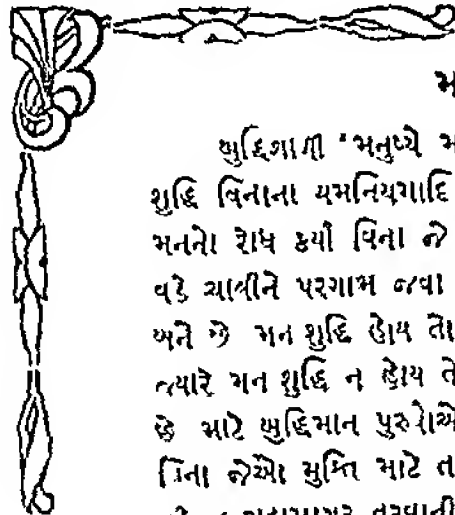 મ
બુદ્ધિશાળી મનુષ્યે મ
શુદ્ધિ વિનાના યમનિયમાદિ
મનનો રોધ કર્યા વિના જે
વડે ચાલીને પરગામ જવા
અને જે મન શુદ્ધિ હોય તો
જ્યારે મન શુદ્ધિ ન હોય તે
છે માટે બુદ્ધિમાન પુરુષોએ
વિના જેઓ મુક્તિ માટે ત
મહાસાગર તરવાની